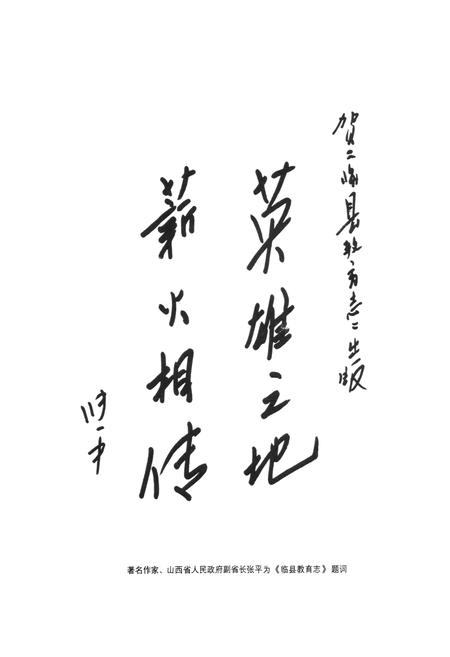 贺《临县教育志》出版
英雄之地
薪火相传
张平
著名作家、山西省人民政府副省长张平为《临县教育志》题词